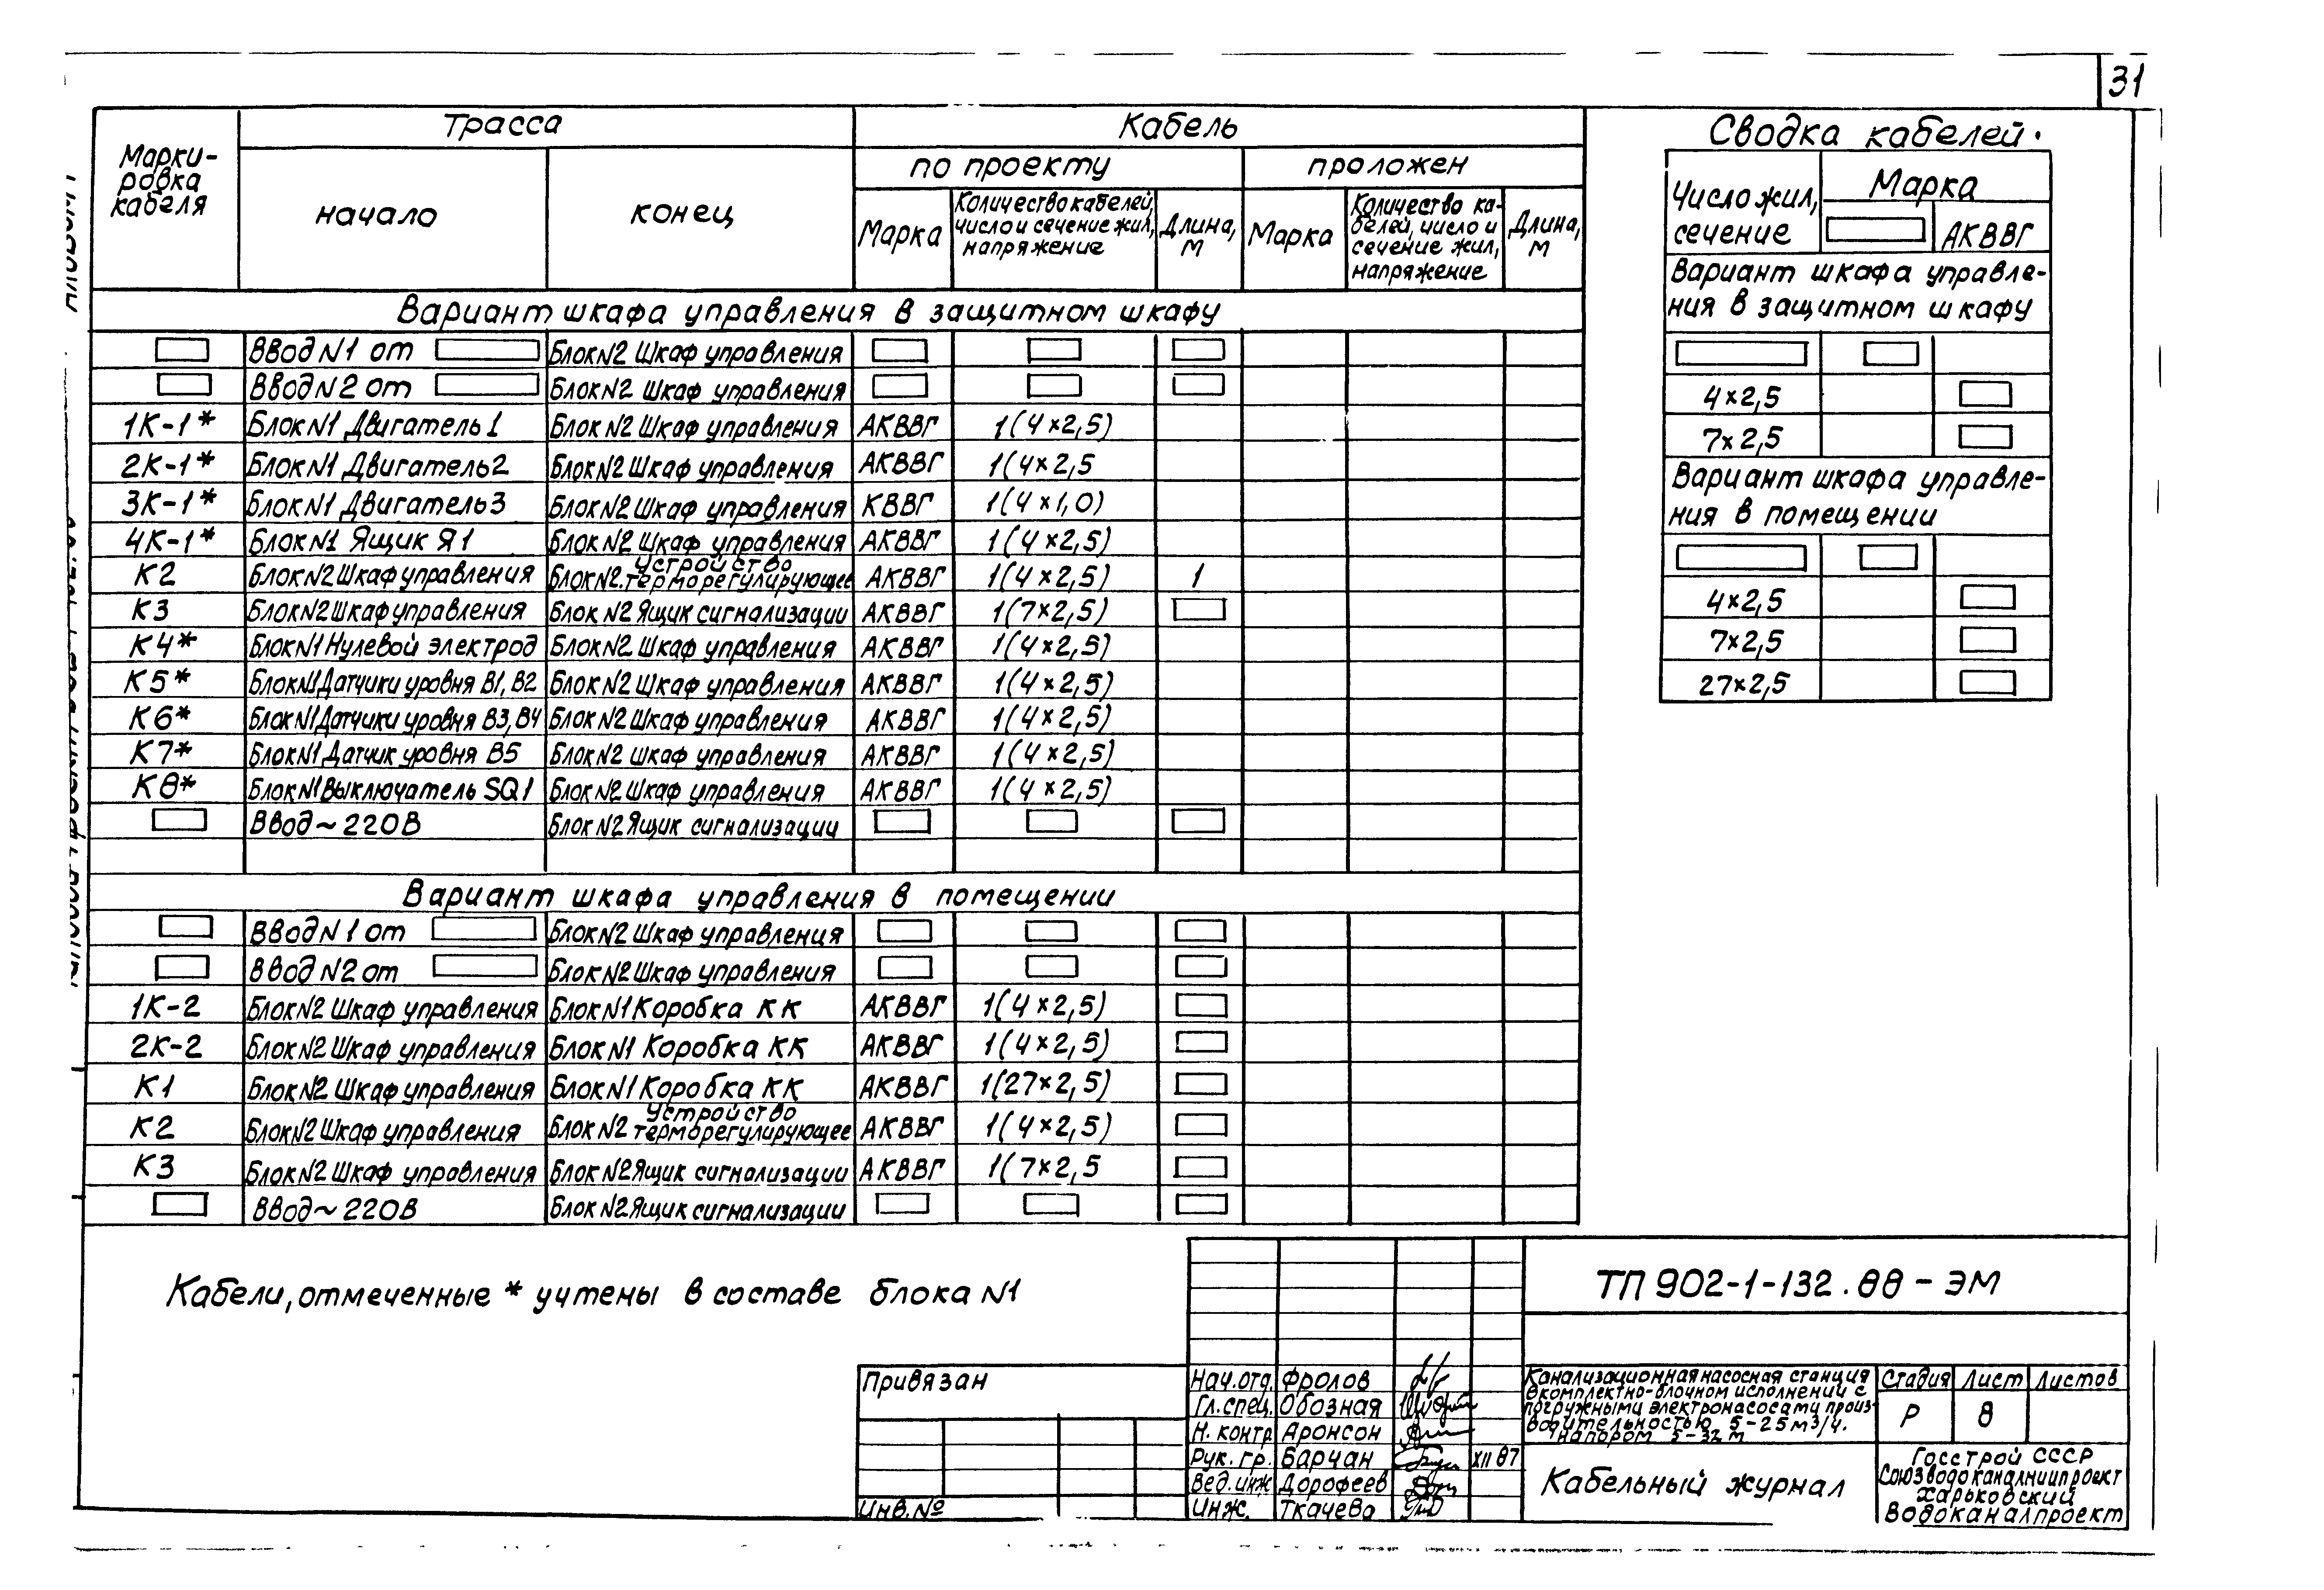 31
Марки-
ровка
кабеля
Трасса
Кабель
начало
конец
по проекту
проложен
Марка
Количество кабелей,
число и сечение жил,
напряжение
Длина,
м
Марка
Количество ка-
белей, число и
сечение жил,
напряжение
Длина,
м
Вариант шкафа управления в защитном шкафу
Ввод N1 от Блок N2 Шкаф управления
Ввод N2 от Блок N2 Шкаф управления
1К-1* Блок N1 Двигатель 1 Блок N2 Шкаф управления АКВВГ 1(4×2,5)
2К-1* Блок N1 Двигатель 2 Блок N2 Шкаф управления АКВВГ 1(4×2,5
3К-1* Блок N1 Двигатель 3 Блок N2 Шкаф управления КВВГ 1(4×1,0)
4К-1* Блок N1 Ящик Я1 Блок N2 Шкаф управления АКВВГ 1(4×2,5)
К2 Блок N2 Шкаф управления Блок N2. Устройство терморегулирующее АКВВГ 1(4×2,5) 1
К3 Блок N2 Шкаф управления Блок N2 Ящик сигнализации АКВВГ 1(7×2,5)
К4* Блок N1 Нулевой электрод Блок N2 Шкаф управления АКВВГ 1(4×2,5)
К5* Блок N1 Датчики уровня В1, В2 Блок N2 Шкаф управления АКВВГ 1(4×2,5)
К6* Блок N1 Датчики уровня В3, В4 Блок N2 Шкаф управления АКВВГ 1(4×2,5)
К7* Блок N1 Датчик уровня В5 Блок N2 шкаф управления АКВВГ 1(4×2,5)
К8* Блок N1 Выключатель SQ1 Блок N2 Шкаф управления АКВВГ 1(4×2,5)
Ввод ~ 220В Блок N2 Ящик сигнализации
Вариант шкафа управления в помещении
Ввод N1 от Блок N2 Шкаф управления
Ввод N2 от Блок N2 Шкаф управления
1К-2 Блок N2 Шкаф управления Блок N1 Коробка КК АКВВГ 1(4×2,5)
2К-2 Блок N2 Шкаф управления Блок N1 Коробка КК АКВВГ 1(4×2,5)
К1 Блок N2 Шкаф управления Блок N1 Коробка КК АКВВГ 1(27×2,5)
К2 Блок N2 Шкаф управления Блок N2 Устройство терморегулирующее АКВВГ 1(4×2,5)
К3 Блок N2 Шкаф управления Блок N2 Ящик сигнализации АКВВГ 1(7×2,5
Ввод ~ 220В Блок N2 Ящик сигнализации
Сводка кабелей.
Число жил,
сечение
Марка
АКВВГ
Вариант шкафа управле-
ния в защитном шкафу
4×2,5
7×2,5
Вариант шкафа управле-
ния в помещении
4×2,5
7×2,5
27×2,5
Кабели, отмеченные * учтены в составе блока N1
Привязан
Инв. №
Нач. отд. Фролов
Гл. спец. Обозная
Н. контр. Аронсон
Рук. гр. Барчан XII 87
Вед. инж Дорофеев
Инж. Ткачева
ТП 902-1-132.88 - ЭМ
Канализационная насосная станция
в комплектно-блочном исполнении с
погружными электронасосами произ-
водительностью 5-25 м3/ч.
напором 5-32 м
Стадия Лист Листов
Р 8
Кабельный журнал
Госстрой СССР
Союзводоканалниипроект
Харьковский
Водоканалпроект